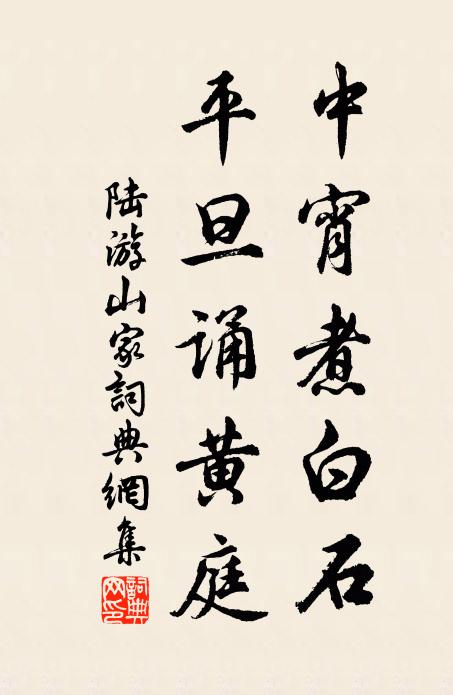 中宵煮白石
平旦诵黄庭
陆游山家詞典網集
詞典网印